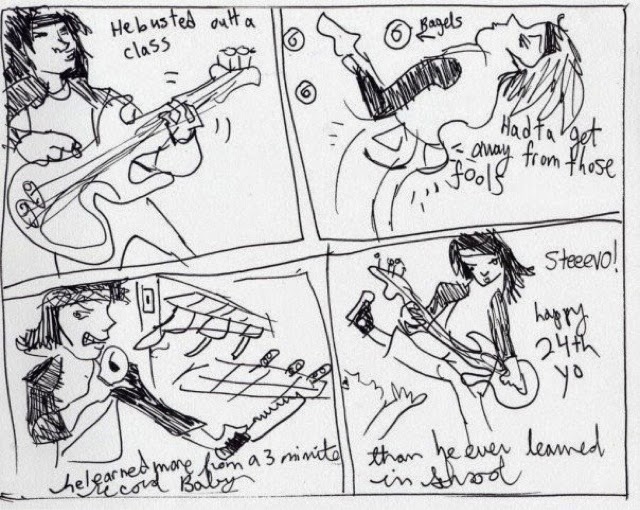 He busted outta
class
6
6
6
Bagels
Hadta get
away from those
fools
he learned more from a 3 minute
record Baby
Steeevo!
happy
24th
yo
than he ever learned
in skool